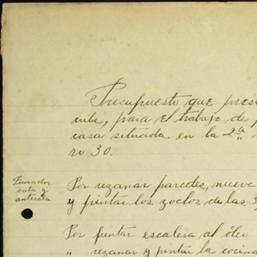 Presupuesto que pres
cribe, para el trabajo de p
casa situada en la 2ª
ro 30.
Fumador
sala y
antesala
Por resanar paredes, nueve
y pintar los zoclos de las 3
Por pintar escalera al óleo
" resanar y pintar la cocina